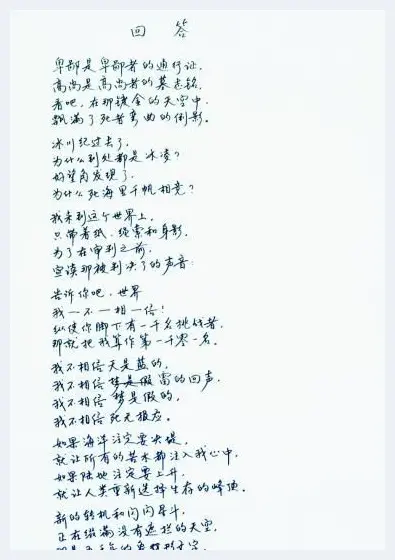 回 答
卑鄙是卑鄙者的通行证,
高尚是高尚者的墓志铭,
看吧,在那镀金的天空中,
飘满了死者弯曲的倒影。
冰川纪过去了,
为什么到处都是冰凌?
好望角发现了,
为什么死海里千帆相竞?
我来到这个世界上,
只带着纸、绳索和身影,
为了在审判之前,
宣读那被判决了的声音:
告诉你吧,世界
我—不—相—信!
纵使你脚下有一千名挑战者,
那就把我算作第一千零一名。
我不相信天是蓝的,
我不相信梦是假雷的回声,
我不相信梦是假的,
我不相信死无报应。
如果海洋注定要决堤,
就让所有的苦水都注入我心中,
如果陆地注定要上升,
就让人类重新选择生存的峰顶。
新的转机和闪闪星斗,
正在缀满没有遮拦的天空,